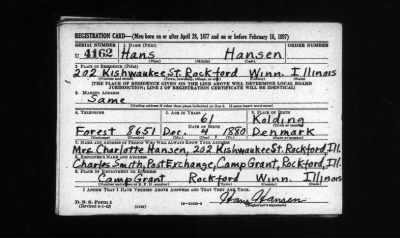 REGISTRATION CARD—(Men born on or after April 28, 1877 and on or before February 16, 1897)
SERIAL NUMBER 1. NAME (Print) ORDER NUMBER
U 4162 Hans Hansen
(First) (Middle) (Last)
2. PLACE OF RESIDENCE (Print)
202 Kishwaukee St. Rockford Winn. Illinois
(Number and street) (Town, township, village, or city) (County) (State)
[THE PLACE OF RESIDENCE GIVEN ON THE LINE ABOVE WILL DETERMINE LOCAL BOARD
JURISDICTION; LINE 2 OF REGISTRATION CERTIFICATE WILL BE IDENTICAL]
3. MAILING ADDRESS
Same
[Mailing address if other than place indicated on line 2. If same insert word same]
4. TELEPHONE 5. AGE IN YEARS 6. PLACE OF BIRTH
61 Kolding
DATE OF BIRTH
Forest 8651 Dec. 4 1880 Denmark
7. NAME AND ADDRESS OF PERSON WHO WILL ALWAYS KNOW YOUR ADDRESS
Mrs. Charlotte Hansen, 202 Kishwaukee St. Rockford, Ill.
8. EMPLOYER'S NAME AND ADDRESS
Charles Smith, Post Exchange, Camp Grant, Rockford, Ill.
9. PLACE OF EMPLOYMENT OR BUSINESS
Camp Grant Rockford Winn. Illinois
(Number and street or R. F. D. number) (Town) (County) (State)
I AFFIRM THAT I HAVE VERIFIED ABOVE ANSWERS AND THAT THEY ARE TRUE.
D. S. S. Form 1
(Revised 4-1-42) (over)
Hans Hansen